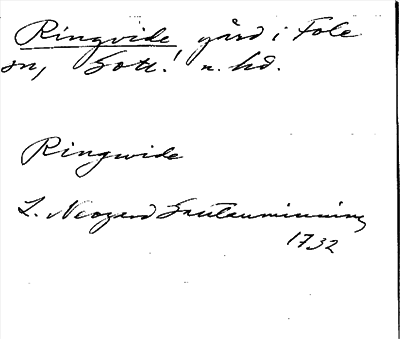 Ringvide, gård i Fole
sn, Gotl! n. hd.
Ringwide
L. Neogard Gautauminning
1732